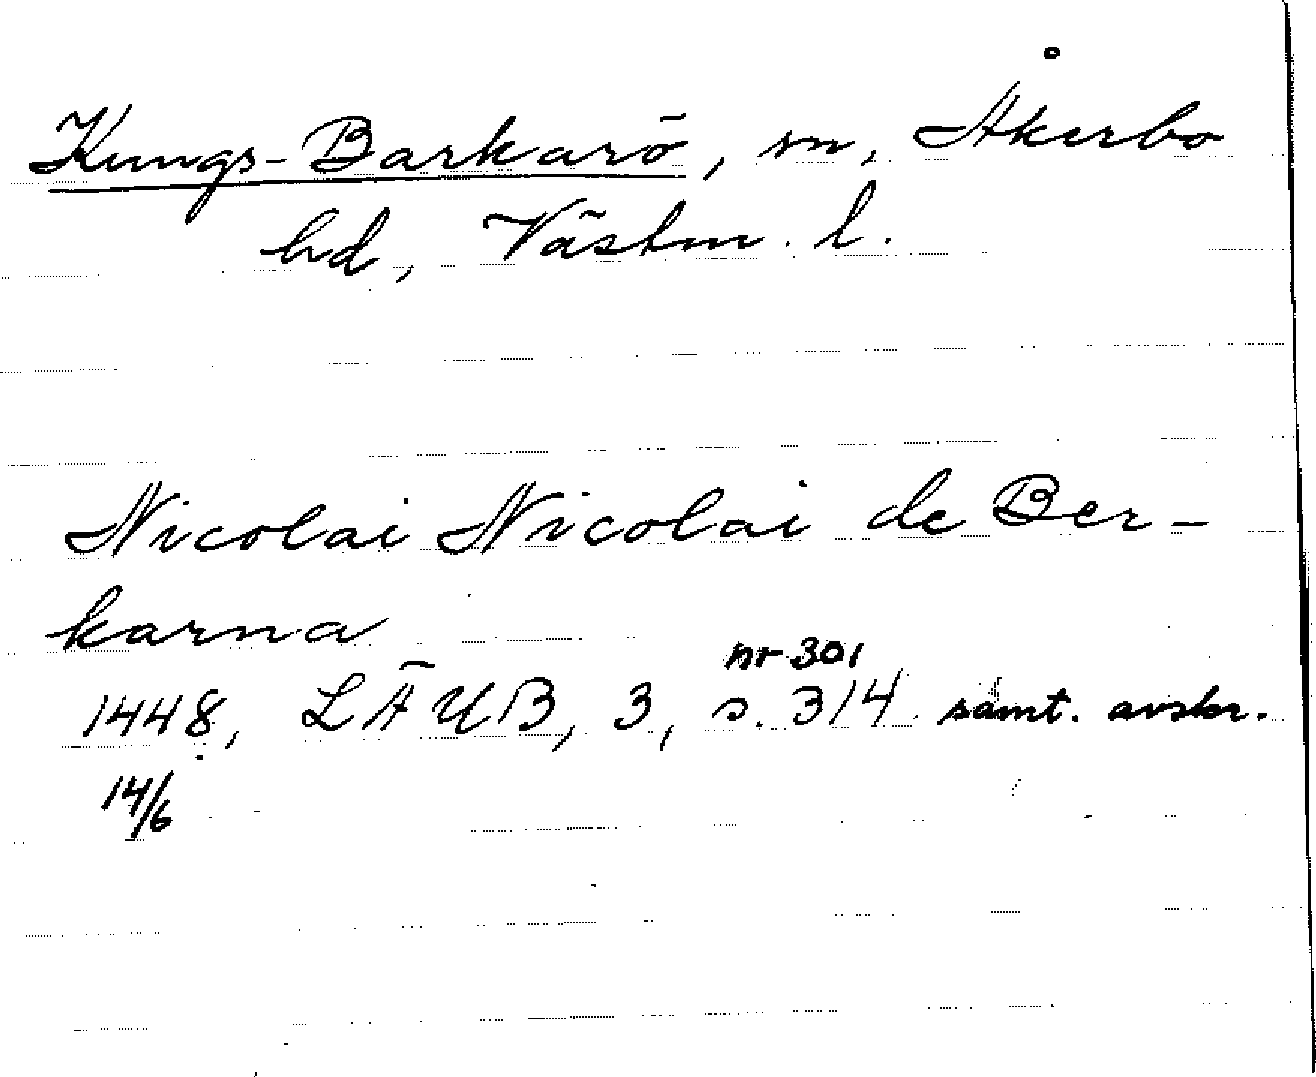 Kungs-Barkarö, sn, Åkerbo
hd, Västm. l.
Nicolai Nicolai de Ber-
karna
nr 301
1448, LÄUB, 3, s. 314 samt. avskr.
14/6